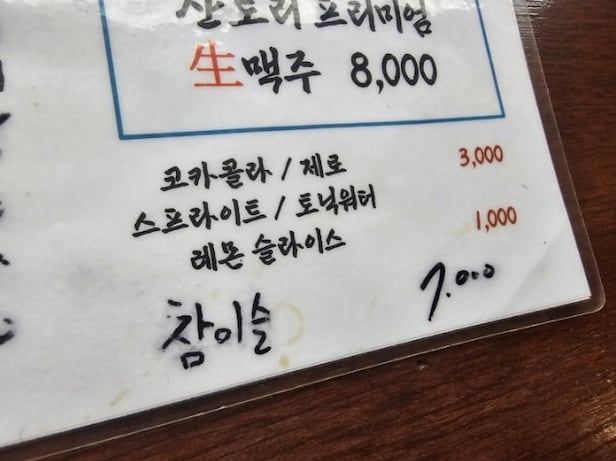 산토리 프리미엄
生맥주 8,000
코카콜라 / 제로 3,000
스프라이트 / 토닉워터
레몬 슬라이스 1,000
참이슬 7.000